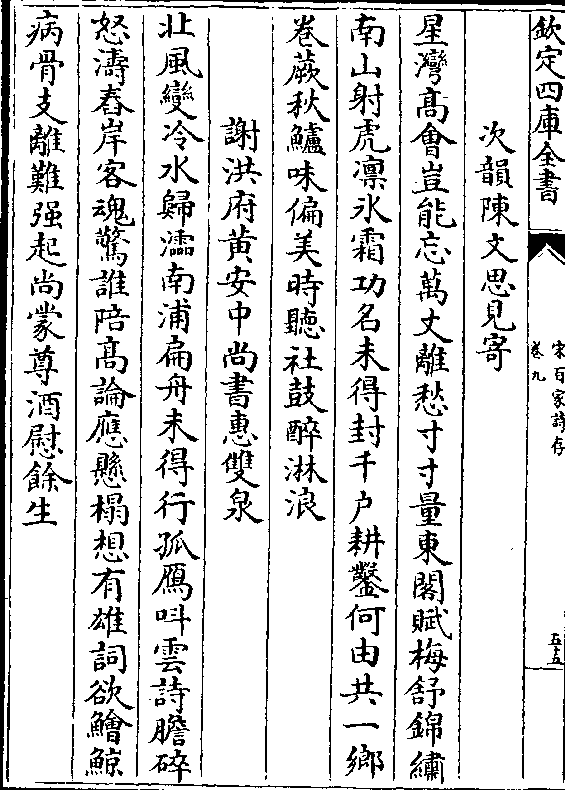 欽定四庫全書
宋百家詩存
卷九
五五
次韻陳文思見寄
星灣髙會豈能忘萬丈離愁寸寸量東閣賦梅舒錦繡
南山射虎凛氷霜功名未得封千户耕鑿何由共一鄉
巻蕨秋鱸味偏美時聽社鼓醉淋浪
謝洪府黄安中尚書惠雙泉
北風變冷水歸𤅢南浦扁舟未得行孤鴈呌雲詩膽碎
怒濤舂岸客魂驚誰陪髙論應懸榻想有雄詞欲鱠鯨
病骨支離難强起尚蒙尊酒慰餘生